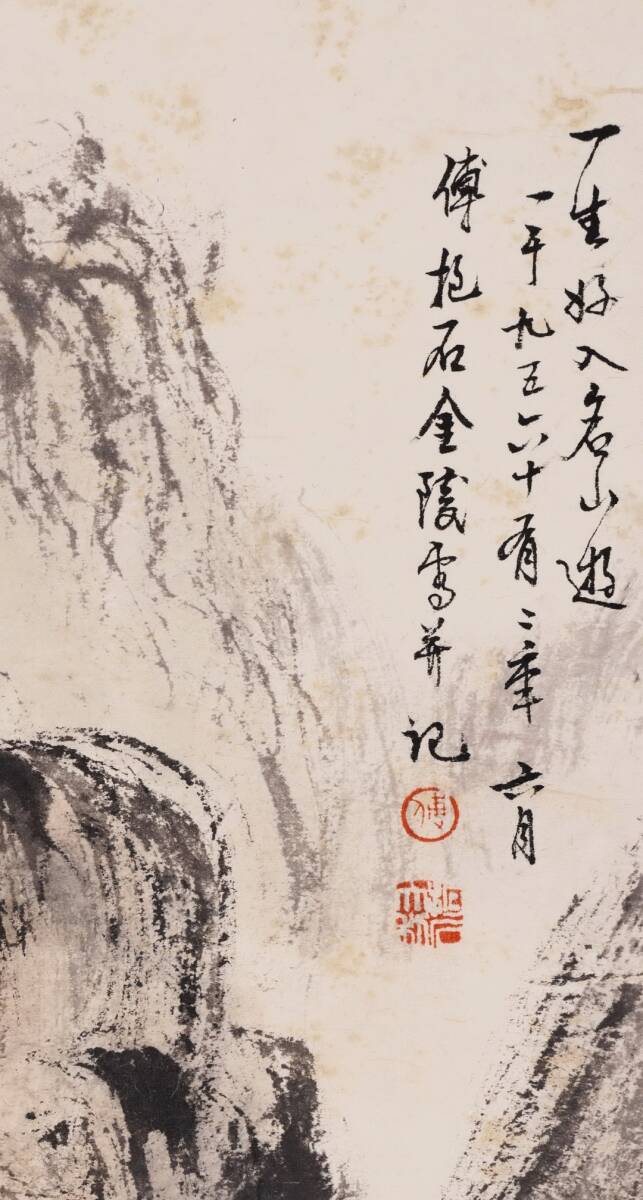 一生好入名山遊
一千九百六十有三年 六月
傅抱石金陵寫并記
傅